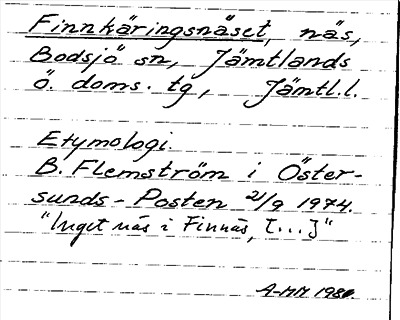 Finnkäringsnäset, näs,
Bodsjö sn, Jämtlands
ö. doms. tg, Jämtl.l.
Etymologi.
B. Flemström i Öster-
sunds-Posten 21/9 1974.
"Inget näs i Finnäs, [...]"
A-MM 1980.